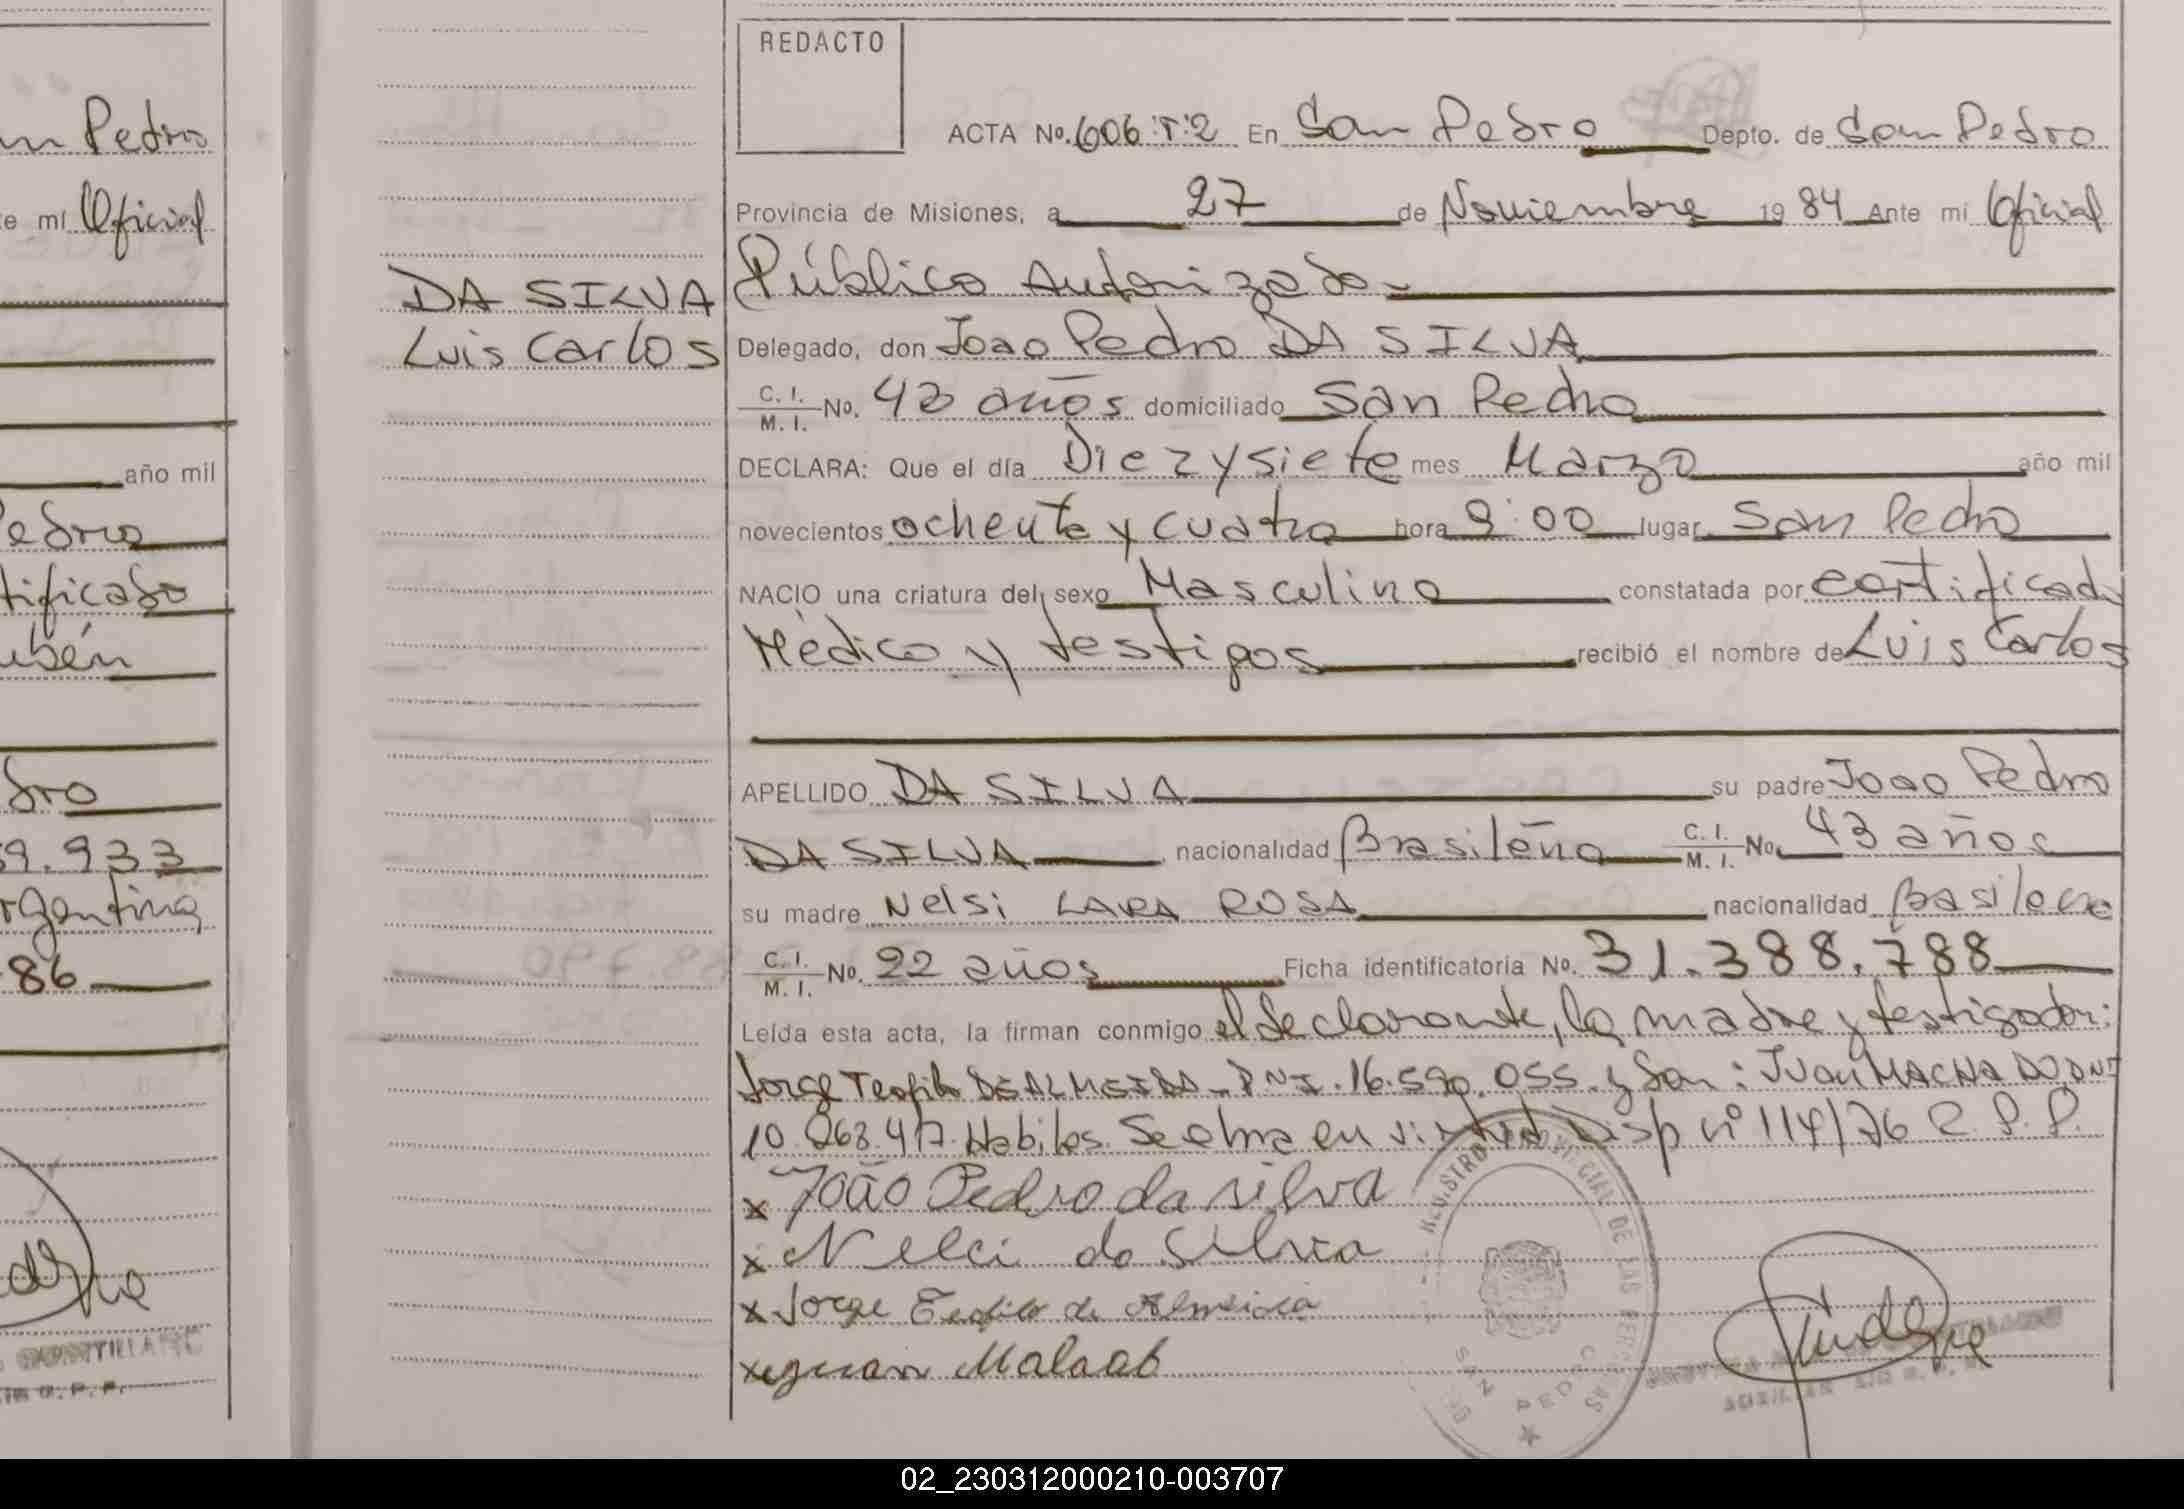 m Pedro
te mí Oficial
año mil
Pedro
tificado
ubén
dro
59.933
rgentina
86
DA SILVA
Luis Carlos
REDACTO
ACTA No. 606 T:2 En San Pedro Depto. de San Pedro
Provincia de Misiones, a 27 de Noviembre 19 84 Ante mí Oficial
Público Autorizado
Delegado, don Joao Pedro DA SILVA
C. I. / M. I. No. 43 años domiciliado San Pedro
DECLARA: Que el día Diezysiete mes Marzo año mil
novecientos ochenta y cuatro hora 9:00 lugar San Pedro
NACIO una criatura del sexo Masculino constatada por certificado
Médico y testigos recibió el nombre de Luis Carlos
APELLIDO DA SILVA su padre Joao Pedro
DA SILVA nacionalidad Brasileña C. I. / M. I. No. 43 años
su madre Nelsi LARA ROSA nacionalidad
C. I. / M. I. No. 22 años Ficha identificatoria No. 31.388.788
Leída esta acta, la firman conmigo el declarante, la madre y testigos don:
Jorge Teofilo DE ALMEIDA - DNI. 16.590.055 y don: Juan MACHADO DNI
10.263.417 Habiles. Se labra en virtud Disp nº 114/76 R. P. P.
x João Pedro da silva
x Nelci da Silvia
x Jorge Teofilo de Almeida
x Juan
REGISTRO PROVINCIAL DE LAS PERSONAS
SAN PEDRO
02_230312000210-003707